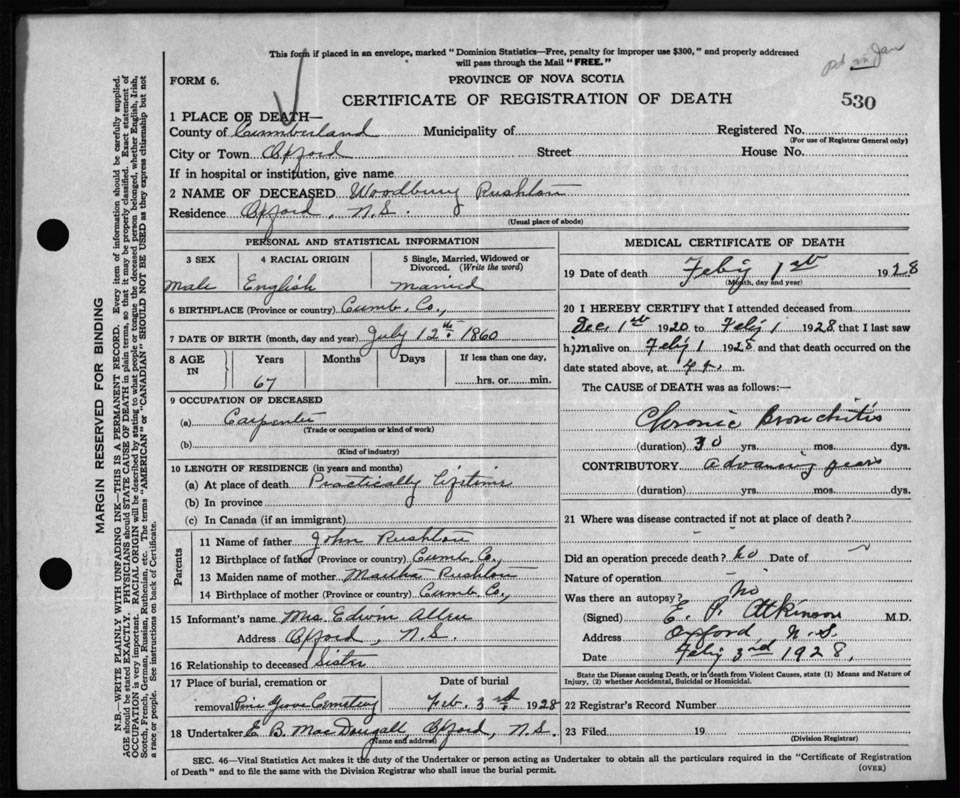 This form if placed in an envelope, marked "Dominion Statistics—Free, penalty for improper use $300," and properly addressed
will pass through the Mail "FREE."
FORM 6.
PROVINCE OF NOVA SCOTIA
CERTIFICATE OF REGISTRATION OF DEATH
530
1 PLACE OF DEATH—
County of Cumberland Municipality of Registered No.
(For use of Registrar General only)
City or Town Oxford Street House No.
If in hospital or institution, give name
2 NAME OF DECEASED Woodbury Rushton
Residence Oxford, N.S.
(Usual place of abode)
PERSONAL AND STATISTICAL INFORMATION
3 SEX 4 RACIAL ORIGIN 5 Single, Married, Widowed or
Divorced. (Write the word)
Male English Married
6 BIRTHPLACE (Province or country) Cumb. Co.,
7 DATE OF BIRTH (month, day and year) July 12th. 1860
8 AGE IN Years Months Days If less than one day,
67 hrs. or min.
9 OCCUPATION OF DECEASED
(a) Carpenter
(Trade or occupation or kind of work)
(b)
(Kind of industry)
10 LENGTH OF RESIDENCE (in years and months)
(a) At place of death Practically lifetime
(b) In province
(c) In Canada (if an immigrant)
Parents
11 Name of father John Rushton
12 Birthplace of father (Province or country) Cumb. Co.,
13 Maiden name of mother Martha Rushton
14 Birthplace of mother (Province or Country) Cumb. Co.,
15 Informant's name Mrs. Edwin Allen
Address Oxford, N.S.
16 Relationship to deceased Sister
17 Place of burial, cremation or Date of burial
removal Pine Grove Cemetery Feb. 3rd. 1928
18 Undertaker E. B. MacDougall, Oxford, N.S.
(Name and address)
MEDICAL CERTIFICATE OF DEATH
19 Date of death Feb'y 1st 1928
(Month, day and year)
20 I HEREBY CERTIFY that I attended deceased from
Dec. 1st 1920 to Feb'y 1 1928 that I last saw
him alive on Feb'y 1 1928 and that death occurred on the
date stated above, at 4 m.
The CAUSE of DEATH was as follows:—
Chronic Bronchitis
(duration) 30 yrs. mos. dys.
CONTRIBUTORY advancing years
(duration) yrs. mos. dys.
21 Where was disease contracted if not at place of death?
Did an operation precede death? no Date of
Nature of operation
Was there an autopsy? No
(Signed) E. P. Atkinson M.D.
Address Oxford, N.S.
Date Feb'y 3rd 1928,
State the Disease causing Death, or in death from Violent Causes, state (1) Means and Nature of
Injury, (2) whether Accidental, Suicidal or Homicidal.
22 Registrar's Record Number
23 Filed 19
(Division Registrar)
SEC. 46—Vital Statistics Act makes it the duty of the Undertaker or person acting as Undertaker to obtain all the particulars required in the "Certificate of Registration
of Death" and to file the same with the Division Registrar who shall issue the burial permit.
(OVER)
MARGIN RESERVED FOR BINDING
N.B.—WRITE PLAINLY WITH UNFADING INK—THIS IS A PERMANENT RECORD. Every item of information should be carefully supplied.
AGE should be stated EXACTLY. PHYSICIANS should STATE CAUSE OF DEATH in plain terms, so that it may be properly classified. Exact statement of
OCCUPATION is very important. RACIAL ORIGIN will be described by stating to what people or tongue the deceased person belonged, whether English, Irish,
Scotch, French, German, Russian, Ruthenian, etc. The terms "AMERICAN" or "CANADIAN" SHOULD NOT BE USED as they express citizenship but not
a race or people. See instructions on back of Certificate.